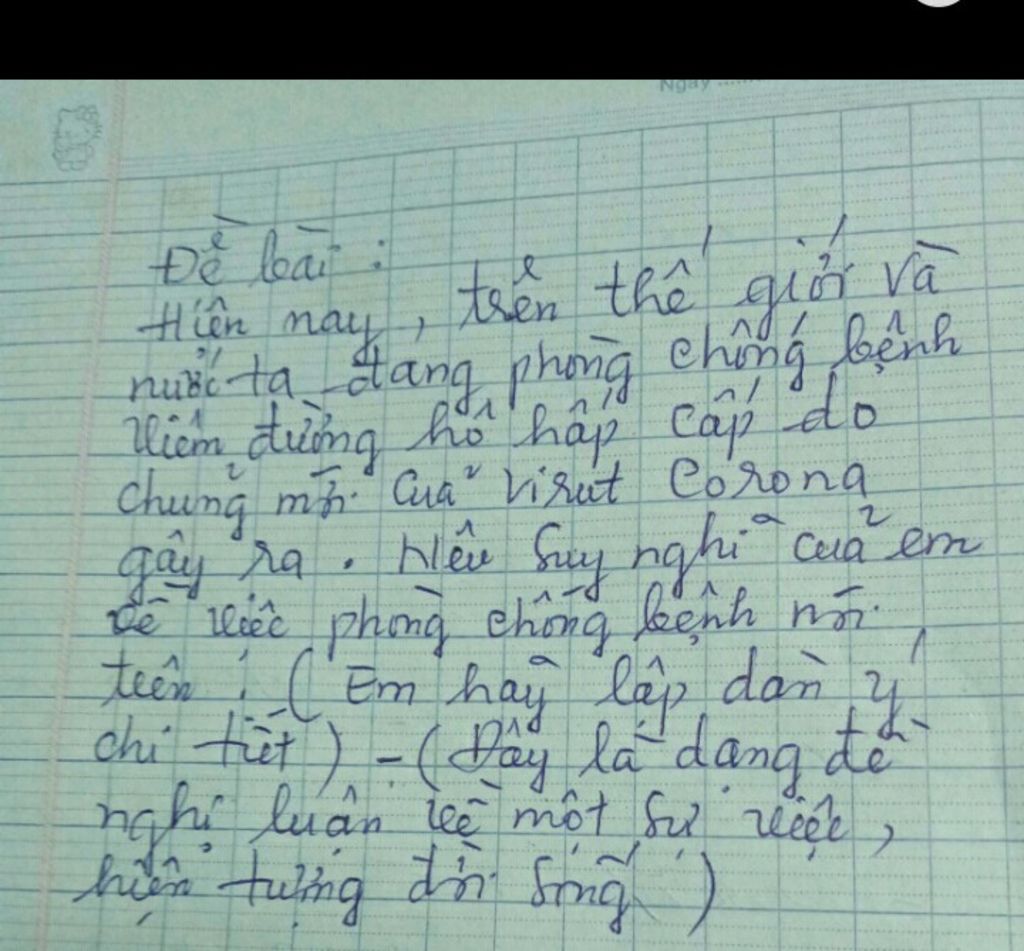 Ngày ......
Đề bài :
Hiện nay, trên thế giới và
nước ta đang phòng chống bệnh
viêm đường hô hấp cấp do
chủng mới của virut Corona
gây ra. Nêu suy nghĩ của em
về việc phòng chống bệnh nói
trên ! (Em hãy lập dàn ý
chi tiết) - (Đây là dạng đề
nghị luận về một sự việc,
hiện tượng đời sống)